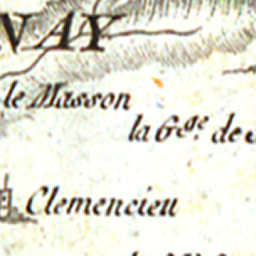 NAY
le Masson
la Gde. de
Clemencieu